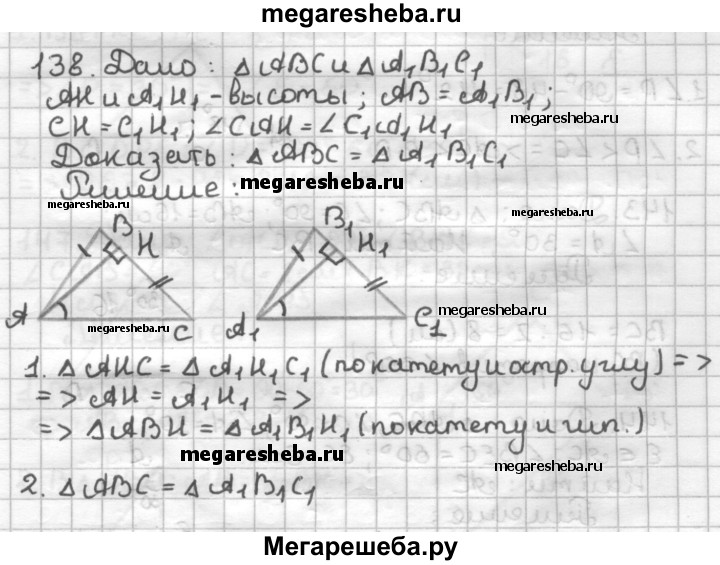 megaresheba.ru
138. Дано: △ABC и △A₁B₁C₁
megaresheba.ru
AH и A₁H₁ - высоты; AB = A₁B₁;
megaresheba.ru
CH = C₁H₁; ∠CAH = ∠C₁A₁H₁
Доказать: △ABC = △A₁B₁C₁
Решение:
megaresheba.ru
megaresheba.ru megaresheba.ru
B H B₁ H₁
megaresheba.ru
A C A₁ C₁
megaresheba.ru
1. △AHC = △A₁H₁C₁ (по катету и остр. углу) =>
=> AH = A₁H₁ =>
=> △ABH = △A₁B₁H₁ (по катету и гип.)
megaresheba.ru
megaresheba.ru
2. △ABC = △A₁B₁C₁
Мегарешеба.ру